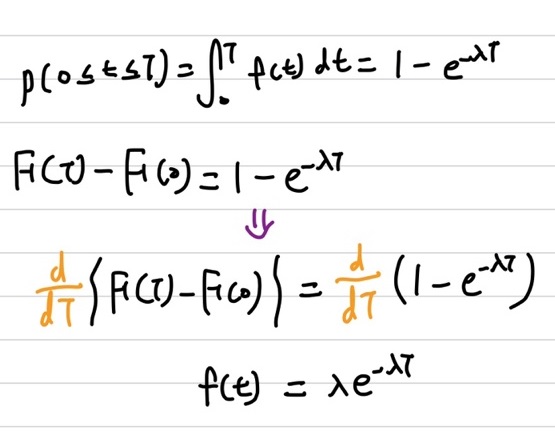 p(0≤t≤T) = ∫₀ᵀ f(t) dt = 1 - e^{-λT}
F(T) - F(0) = 1 - e^{-λT}
⇓
d/dT {F(T) - F(0)} = d/dT (1 - e^{-λT})
f(t) = λe^{-λT}